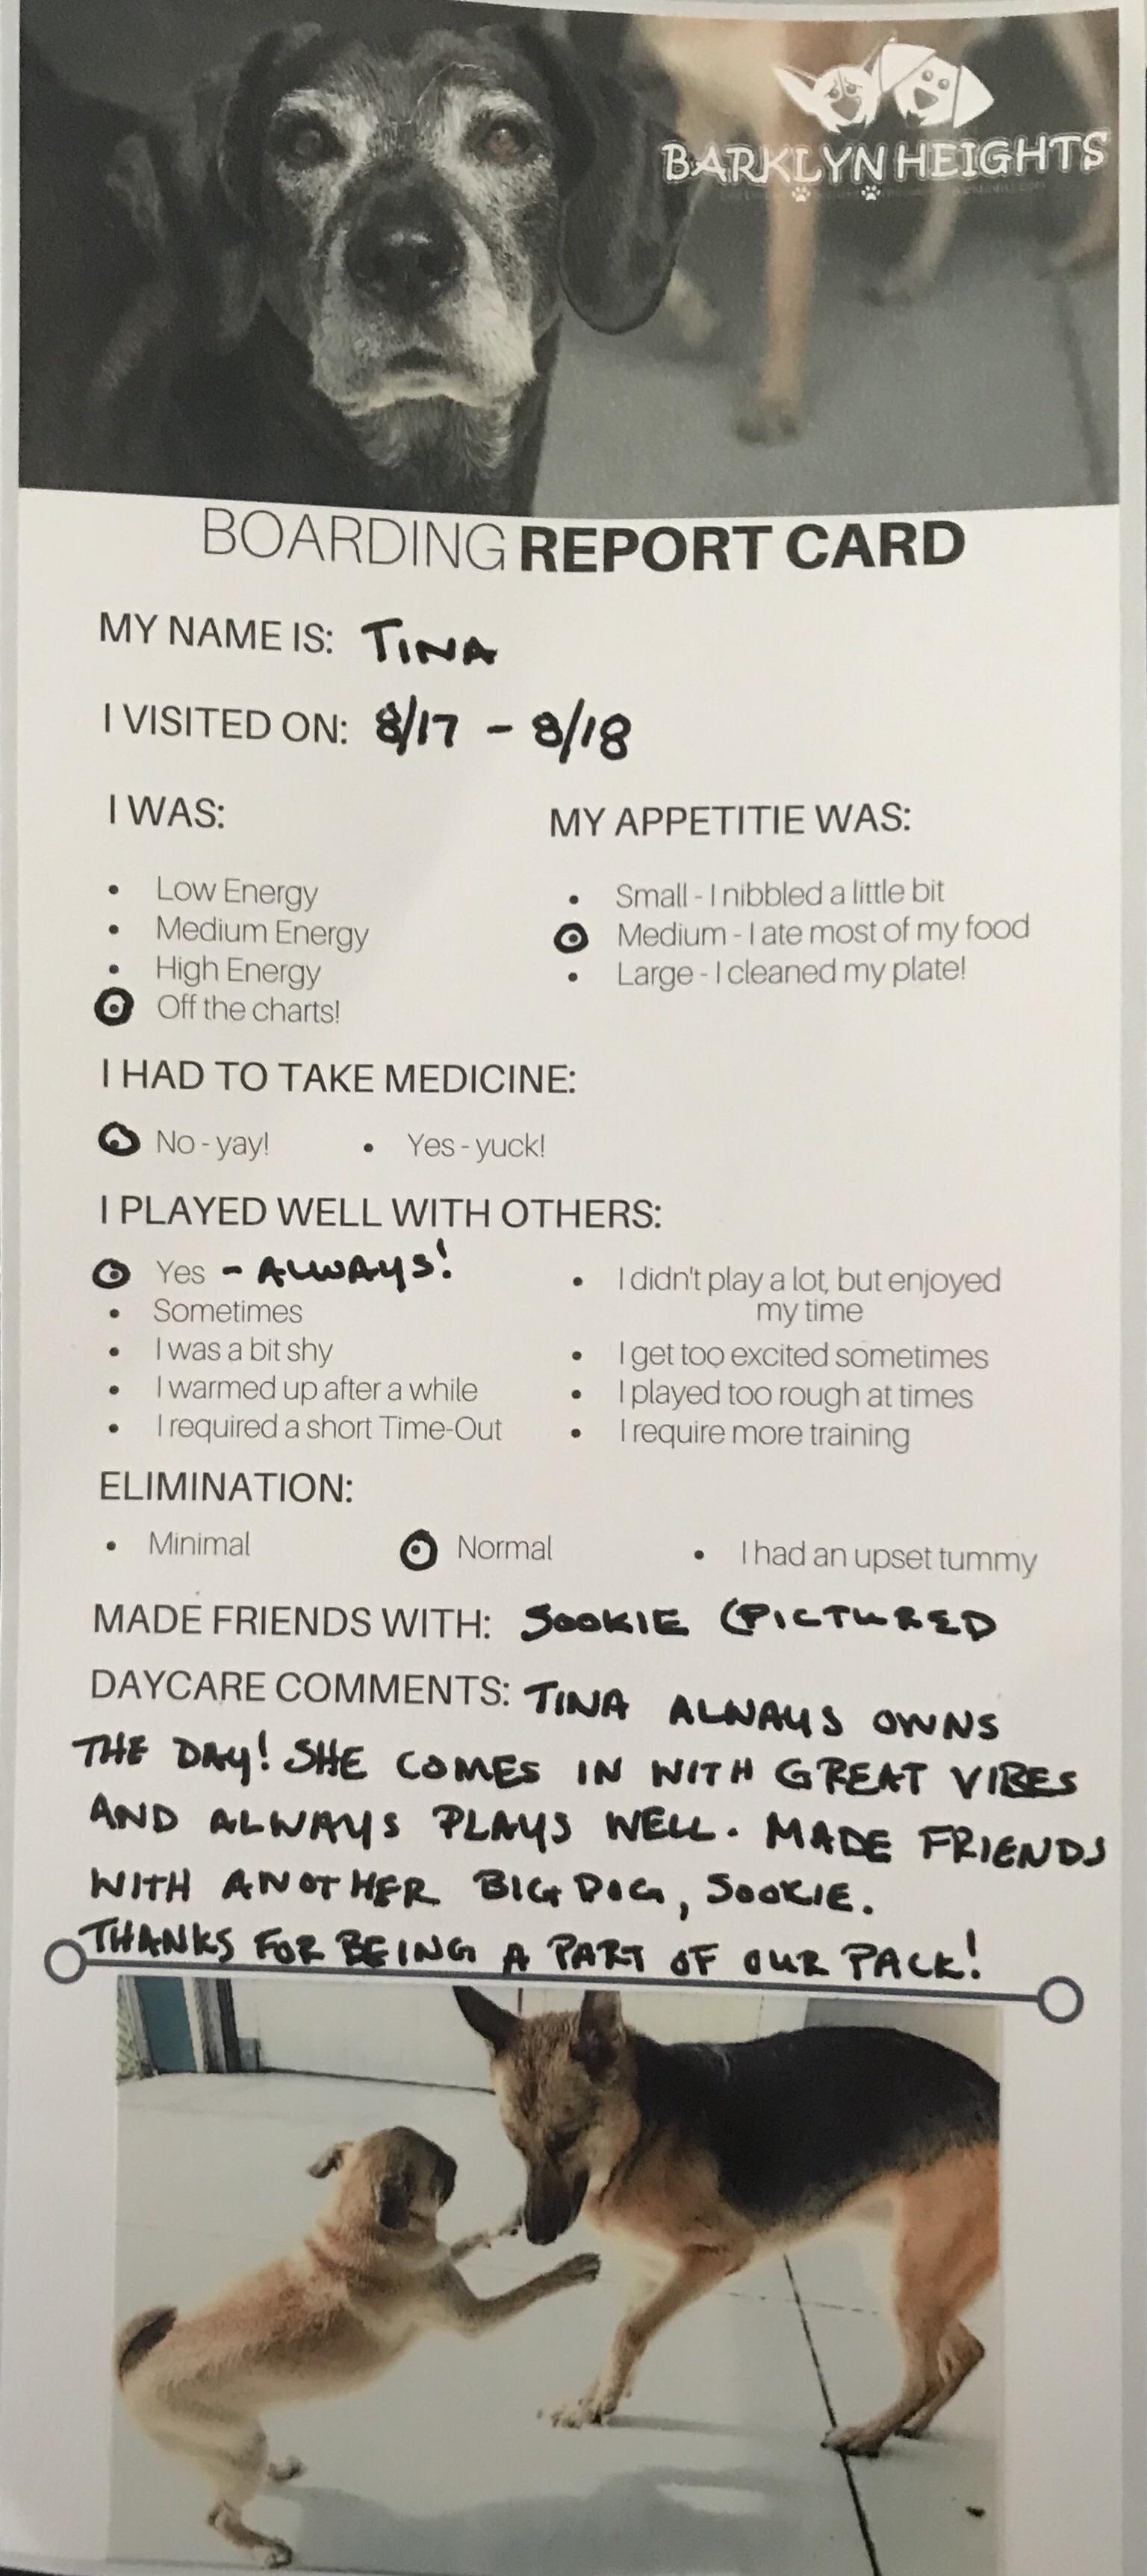 BARKLYN HEIGHTS
BOARDING REPORT CARD
MY NAME IS: TINA
I VISITED ON: 8/17 - 8/18
I WAS:
Low Energy
Medium Energy
High Energy
Off the charts!
MY APPETITIE WAS:
Small - I nibbled a little bit
Medium - I ate most of my food
Large - I cleaned my plate!
I HAD TO TAKE MEDICINE:
No - yay! • Yes - yuck!
I PLAYED WELL WITH OTHERS:
Yes - ALWAYS!
• Sometimes
• I was a bit shy
• I warmed up after a while
• I required a short Time-Out
• I didn't play a lot, but enjoyed
my time
• I get too excited sometimes
• I played too rough at times
• I require more training
ELIMINATION:
• Minimal Normal • I had an upset tummy
MADE FRIENDS WITH: SOOKIE (PICTURED
DAYCARE COMMENTS: TINA ALWAYS OWNS
THE DAY! SHE COMES IN WITH GREAT VIBES
AND ALWAYS PLAYS WELL. MADE FRIENDS
WITH ANOTHER BIG DOG, SOOKIE.
THANKS FOR BEING A PART OF OUR PACK!